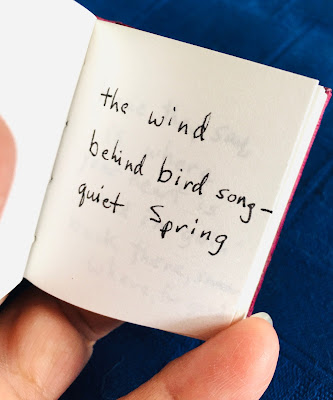 the wind
behind bird song–
quiet Spring